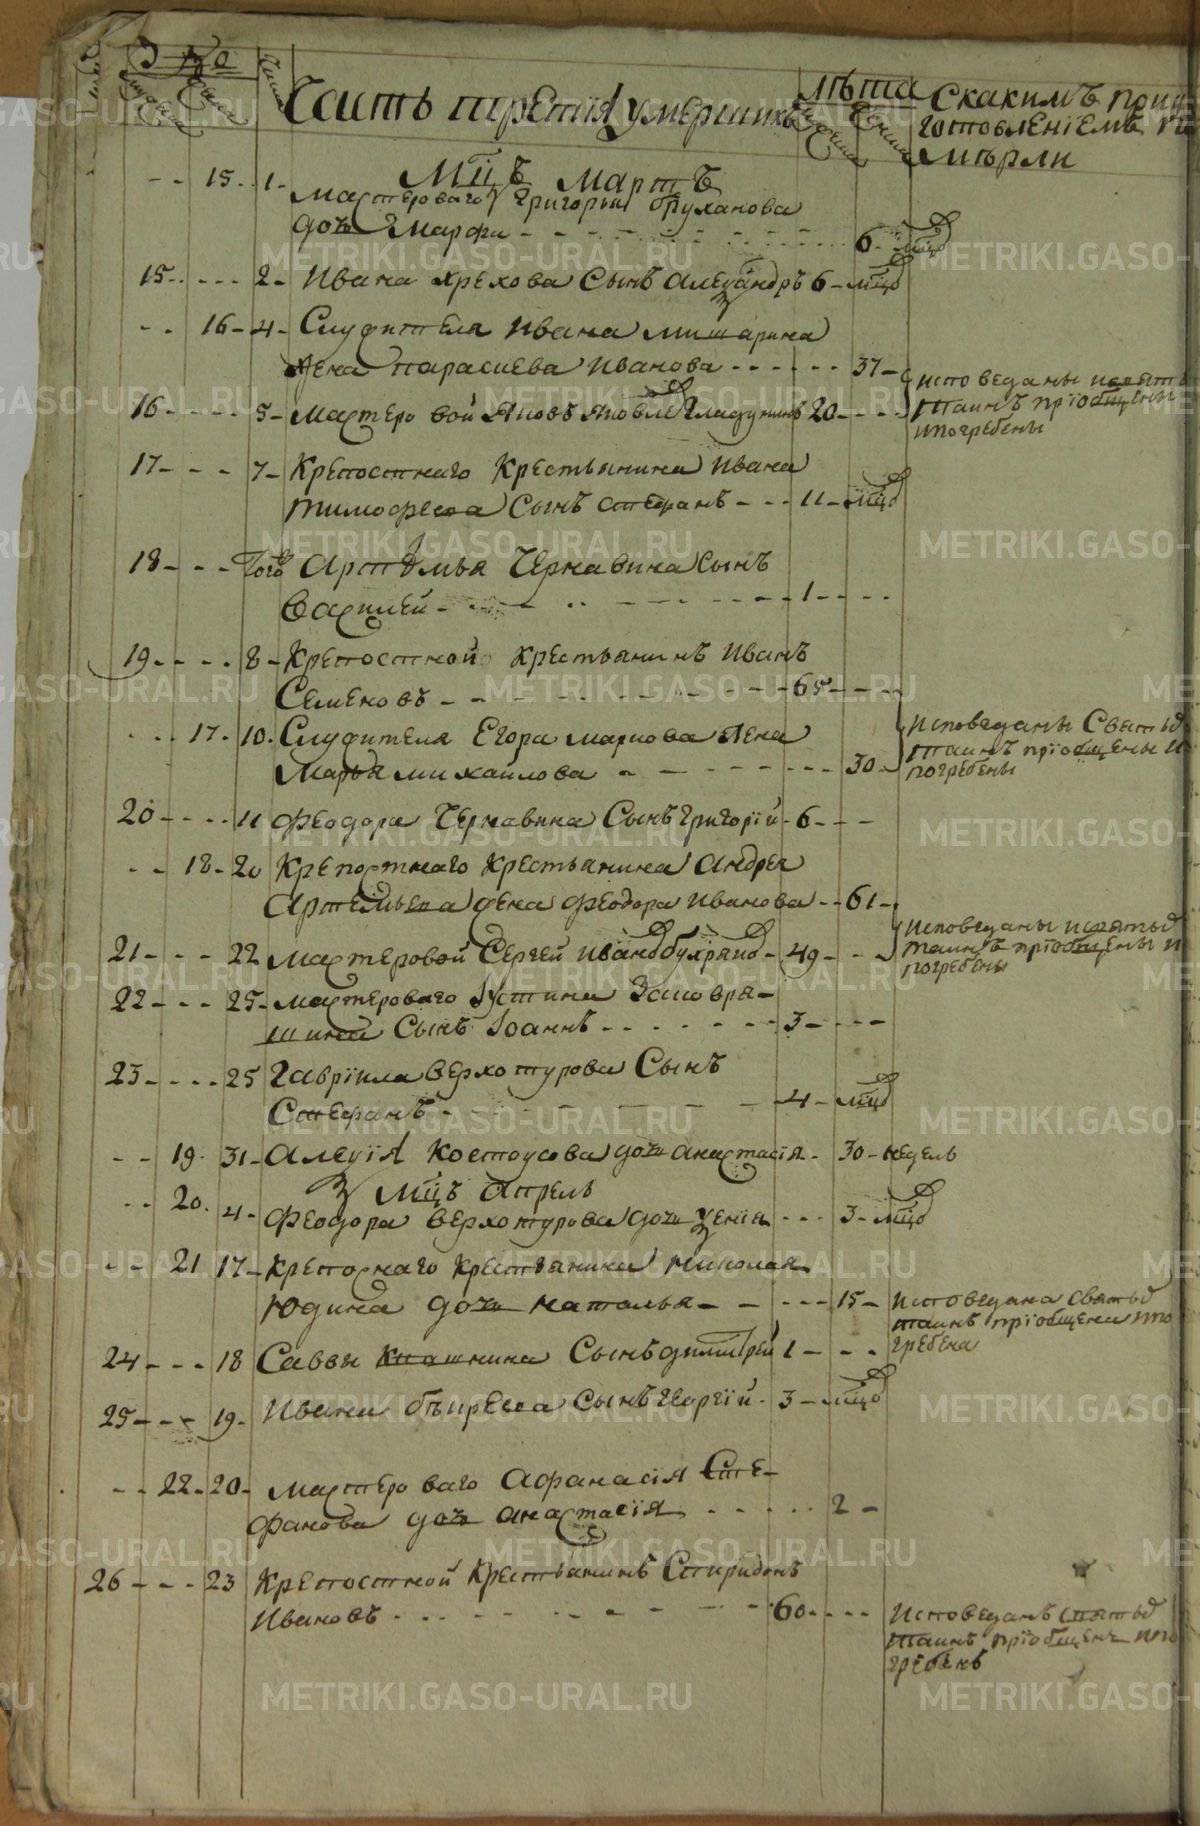 Часть третія умершихъ
лѣта
скакимъ приу
готовленіемъ
мѣрли
Мцъ Мартъ
15. 1. Мастероваго Григорья Труханова
дочь Марфа 6. мцо
15 2 Ивана Ярехова Сынъ Алеѯандръ 6 мцо
16 4 Служителя Ивана Мишарина
жена Парасцева Иванова 37
исповеданы исвятъ
таинъ пріобщены
ипогребены
16 5 Мастеровой Яковъ Яковле Гладунинъ 20
17 7 Крепостнаго Крестьянина Ивана
Тимофеева Сынъ Стефанъ 11 мцо
18 Того Артемья Чернавина сынъ
Василей 1
19 8 Крепостной Крестьянинъ Иванъ
Семеновъ 65
17. 10. Служителя Егора Маркова жена
Марья Михайлова 30
Исповеданы Святыъ
таинъ пріобщены и
погребены
20 11 Феодора Чернавина Сынъ Григорій 6
18 20 Крепостнаго Крестьянина Андрея
Артемьева жена Феодора Иванова 61
21 22 Мастеровой Сергей Иванов 49
Исповеданы исвятыъ
таинъ пріобщены и
погребены
22 25 Мастероваго Іустина Заковря-
шина Сынъ Іоаннъ 3
23 25 Гавріила Верхотурова Сынъ
Стефанъ 4 мцо
19. 31 Алеѯія Костоусова дочь Анастасія 30 недель
Мцъ Апрель
20. 4. Феодора Верхотурова дочь Ѯенія 3 мцо
21 17 Крепоснаго Крестьянина Николая
Юдина дочь Наталья 15
Исповедана святыъ
таинъ пріобщена ипо
гребена
24 18 Саввы Квашнина Сынъ Димитрей 1
25 19. Ивана Бѣирева Сынъ Георгій 3 мцо
22 20 Мастероваго Афанасія Сте-
фанова дочь Анастасія 2
26 23 Крепостной Крестьянинъ Спиридонъ
Ивановъ 60
Исповеданъ святыъ
таинъ пріобщенъ ипо
гребенъ
METRIKI.GASO-URAL.RU